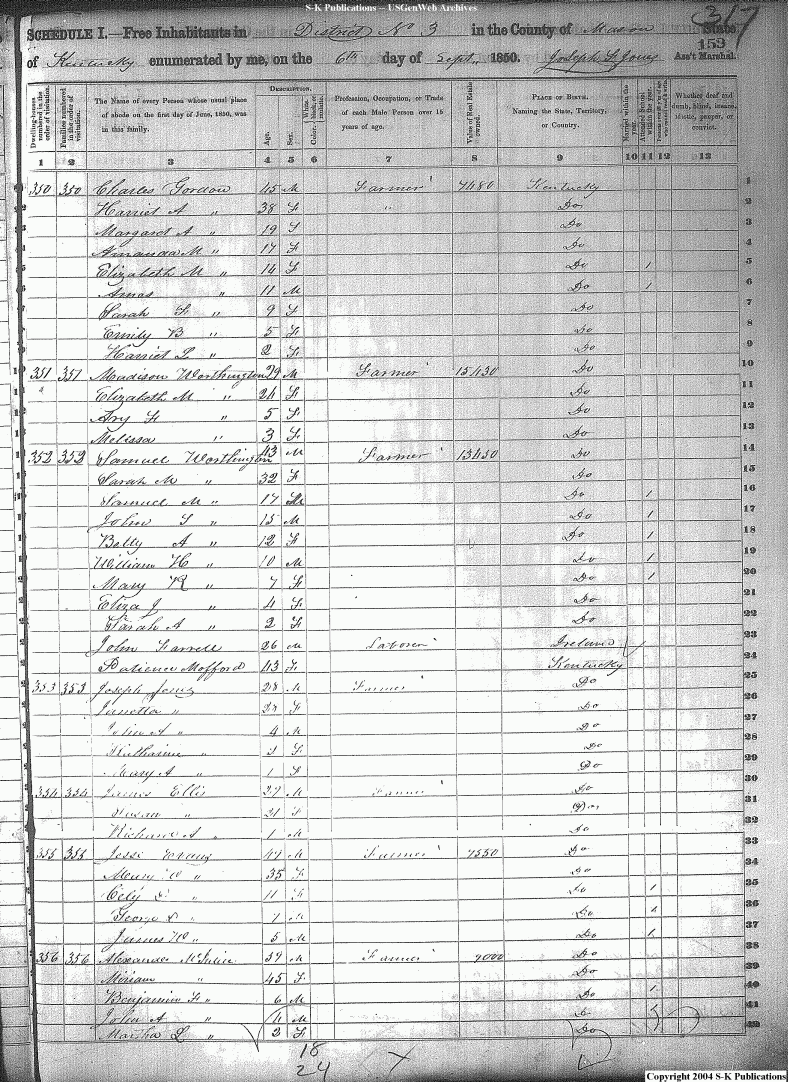 S-K Publications – USGenWeb Archives
317
SCHEDULE I.—Free Inhabitants in District No 3 in the County of Mason State
of Kentucky enumerated by me, on the 6th day of Sept 1850. Joseph Ass't Marshal.
153
Dwelling-houses numbered in the order of visitation.
Families numbered in the order of visitation.
The Name of every Person whose usual place of abode on the first day of June, 1850, was in this family.
Description.
Age.
Sex.
Color, White, black, or mulatto.
Profession, Occupation, or Trade of each Male Person over 15 years of age.
Value of Real Estate owned.
Place of Birth. Naming the State, Territory, or Country.
Married within the year.
Attended School within the year.
Whether deaf and dumb, blind, insane, idiotic, pauper, or convict.
1 2 3 4 5 6 7 8 9 10 11 12 13
350 350 Charles Gordon 45 M Farmer 7480 Kentucky 1
Harriet A " 38 F " Do 2
Margaret A " 19 F Do 3
Amanda M " 17 F Do 4
Elizabeth M " 14 F Do 1 5
Amos " 11 M Do 1 6
Sarah F " 9 F Do 7
Emily B " 5 F Do 8
Harriet L " 2 F Do 9
351 351 Madison Worthington 29 M Farmer 15430 Do 10
Elizabeth M " 24 F Do 11
Ary F " 5 F Do 12
Melissa " 3 F Do 13
352 352 Samuel Worthington 43 M Farmer 13450 Do 14
Sarah M " 32 F Do 15
Samuel M " 17 M Do 1 16
John S " 15 M Do 1 17
Betty A " 12 F Do 1 18
William H " 10 M Do 1 19
Mary R " 7 F Do 1 20
Eliza J " 4 F Do 21
Sarah A " 2 F Do 22
John Farrell 26 M Laborer Ireland 23
Patience Mofford 43 F Kentucky 24
353 353 Joseph Jones 28 M Farmer Do 25
" F Do 26
John A " 4 M Do 27
" 3 F Do 28
Mary A " 1 F Do 29
354 354 James Ellis 27 M Farmer Do 30
Susan " 21 F Do 31
Richard A " 1 M Do 32
355 355 Jesse Evans 47 M Farmer 7550 Do 33
Mary " 35 F Do 34
" 11 F Do 1 35
George " 7 M Do 1 36
James W " 5 M Do 1 37
356 356 Alexander 39 M Farmer 7000 Do 38
Miriam " 45 F Do 39
Benjamin F " 6 M Do 1 40
John A " 4 M Do 41
Martha L " 3 F Do 42
18
24
Copyright 2004 S-K Publications